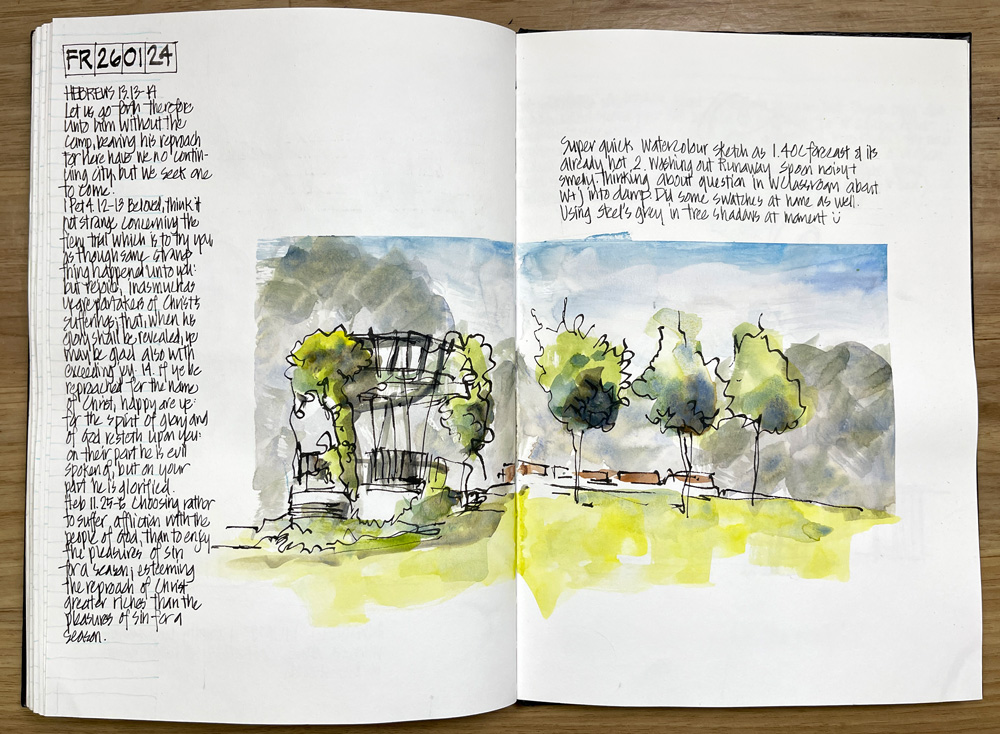 FR 26 01 24
HEBREWS 13.13-14
Let us go forth therefore
unto him without the
camp, bearing his reproach
for here have we no contin-
uing city, but we seek one
to come.
1 Pet 4.12-13 Beloved, think it
not strange concerning the
fiery trial which is to try you,
as though some strange
thing happend unto you:
but rejoice, inasmuch as
ye are partakers of Christ's
sufferings; that, when his
glory shall be revealed, ye
may be glad also with
exceeding joy. 14. if ye be
reproached for the name
of Christ, happy are ye:
for the spirit of glory and
of God resteth upon you:
on their part he is evil
spoken of, but on your
part he is glorified.
Heb 11.25-6 Choosing rather
to suffer affliction with the
people of God, than to enjoy
the pleasures of sin
for a season; esteeming
the reproach of Christ
greater riches than the
pleasures of sin for a
season.
Super quick watercolour sketch as 1. 40C forecast & its
already hot 2. Washing out Runaway Spoon noisy +
smelly. Thinking about question in WClassroom about
w+j into damp. Did some swatches at home as well.
Using Stel's grey in tree shadows at moment